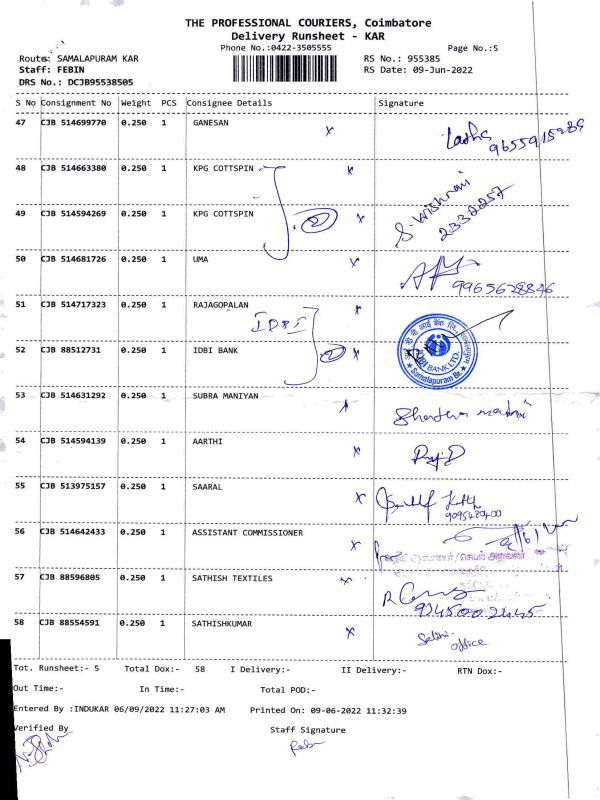 THE PROFESSIONAL COURIERS, Coimbatore
Delivery Runsheet - KAR
Phone No.:0422-3505555 Page No.:5
Route: SAMALAPURAM KAR RS No.: 955385
Staff: FEBIN RS Date: 09-Jun-2022
DRS No.: DCJB95538505
S No Consignment No Weight PCS Consignee Details Signature
47 CJB 514699770 0.250 1 GANESAN x
48 CJB 514663380 0.250 1 KPG COTTSPIN x
49 CJB 514594269 0.250 1 KPG COTTSPIN 2 x 2332257
50 CJB 514681726 0.250 1 UMA x 9965628846
51 CJB 514717323 0.250 1 RAJAGOPALAN x
IDBI
52 CJB 88512731 0.250 1 IDBI BANK 2 x IDBI BANK LTD. Samalapuram Br.
53 CJB 514631292 0.250 1 SUBRA MANIYAN x
54 CJB 514594139 0.250 1 AARTHI x
55 CJB 513975157 0.250 1 SAARAL x
56 CJB 514642433 0.250 1 ASSISTANT COMMISSIONER x
செயல் அலுவலர்
57 CJB 88596805 0.250 1 SATHISH TEXTILES x
58 CJB 88554591 0.250 1 SATHISHKUMAR x
office
Tot. Runsheet:- 5 Total Dox:- 58 I Delivery:- II Delivery:- RTN Dox:-
Out Time:- In Time:- Total POD:-
Entered By :INDUKAR 06/09/2022 11:27:03 AM Printed On: 09-06-2022 11:32:39
Verified By Staff Signature